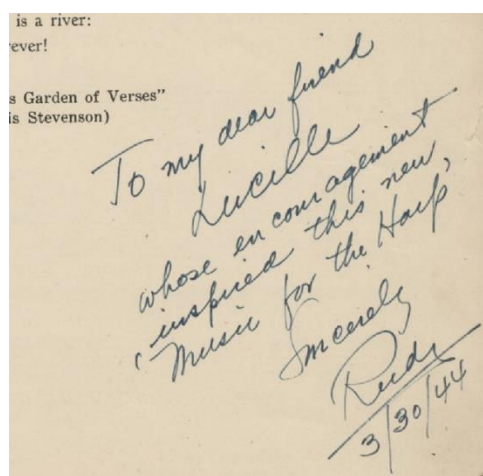 is a river:
ever!
s Garden of Verses"
is Stevenson)
To my dear friend
Lucille
whose encouragement
inspired this new,
"Music for the Harp"
Sincerely
Rudy
3/30/44